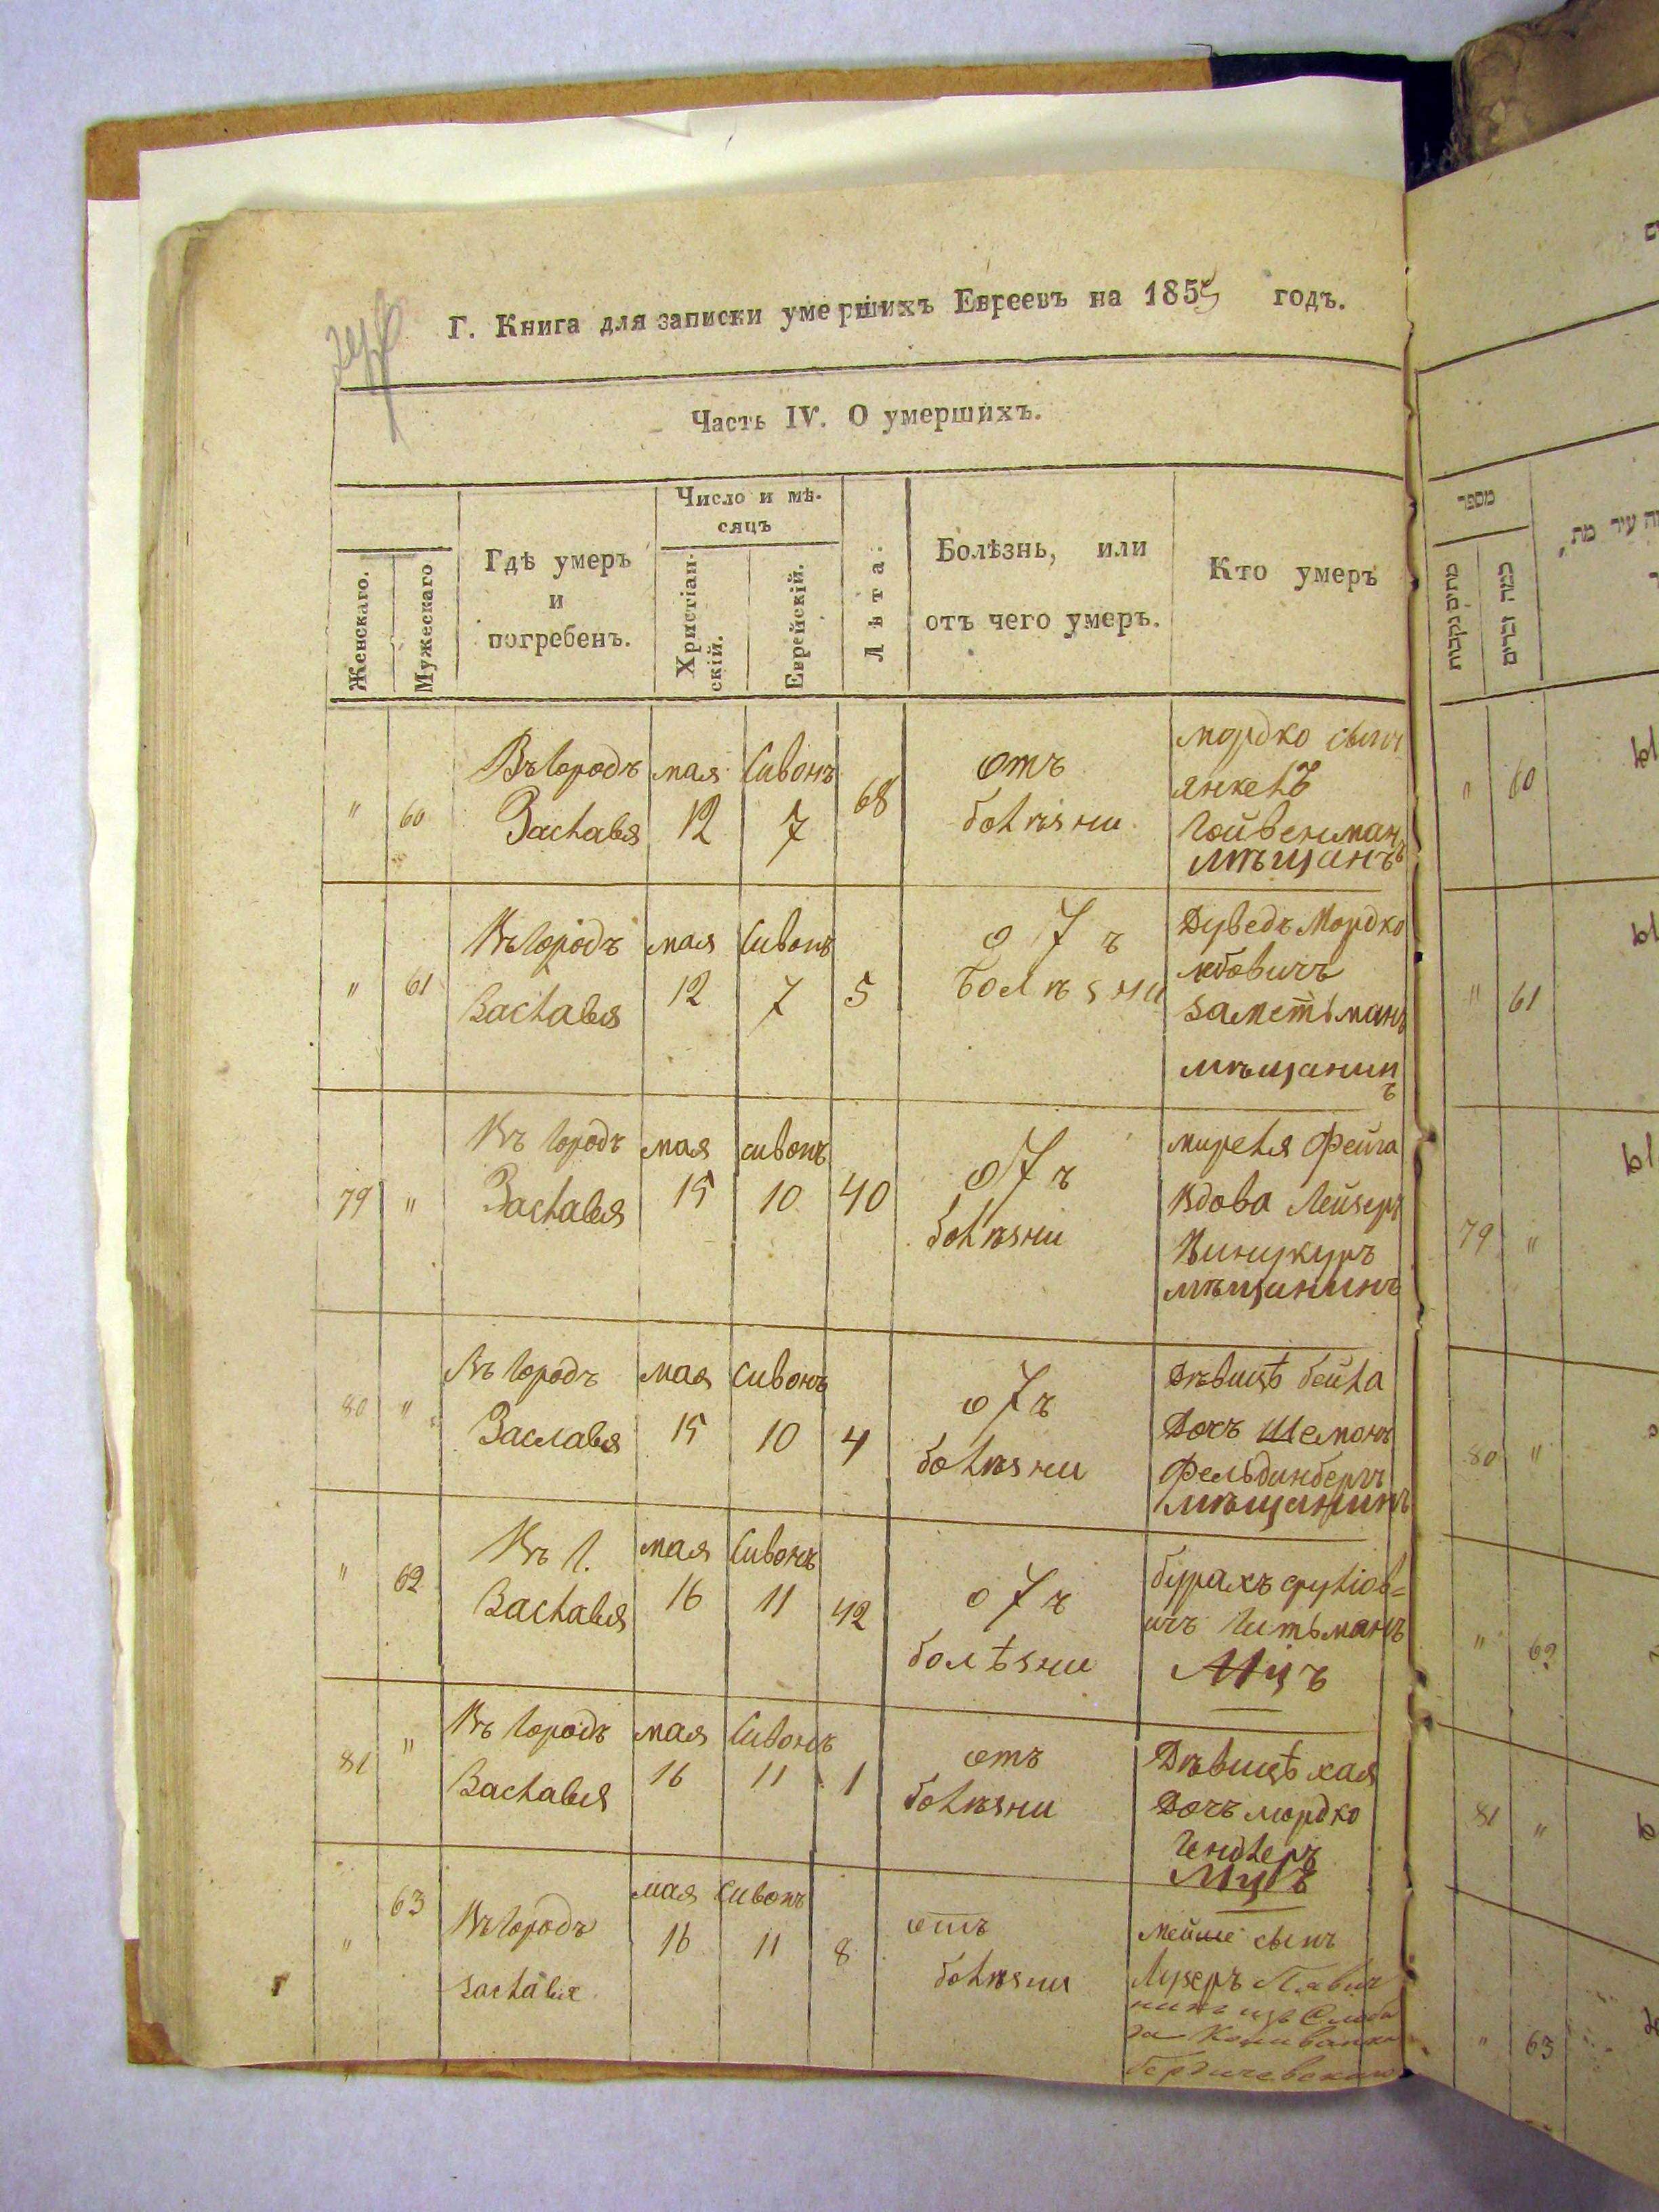 Г. Книга для записки умершихъ Евреевъ на 1855 годъ.
Часть IV. О умершихъ.
Женскаго.
Мужескаго
Гдѣ умеръ
и
погребенъ.
Число и мѣ-
сяцъ
Христіан-
скій.
Еврейскій.
Лѣта.
Болѣзнь, или
отъ чего умеръ.
Кто умеръ
" 60
Въ городѣ
Заславля
мая
12
Сивонъ
7
68
отъ
болѣзни
мордко сынъ
янкель
мѣщанъ
" 61
Въ городѣ
Заславля
мая
12
Сивонъ
7
5
отъ
болѣзни
Дуведъ Мордко
мѣщанинъ
79 "
Въ городѣ
Заславля
мая
15
сивонъ
10
40
отъ
болѣзни
миреля Фейга
Вдова Лейзеръ
Винукуръ
мѣщанинъ
80 "
Въ городѣ
Заславля
мая
15
сивонъ
10
4
отъ
болѣзни
Дѣвицѣ бейла
Дочъ Шемонъ
Фельдинбергъ
мѣщанинъ
" 62
Въ г.
Заславля
мая
16
Сивонъ
11
42
отъ
болѣзни
бурахъ
ичъ Гитьманъ
Мцъ
81 "
Въ городѣ
Заславля
мая
16
Сивонъ
11
1
отъ
болѣзни
Дѣвицѣ хая
Дочъ мордко
Гендлеръ
Мцъ
" 63
Въ городѣ
заславля
мая
16
Сивонъ
11
8
отъ
болѣзни
Мейше сынъ
Лузеръ
מספר
" 60
" 61
79 "
80 "
" 62
81 "
" 63